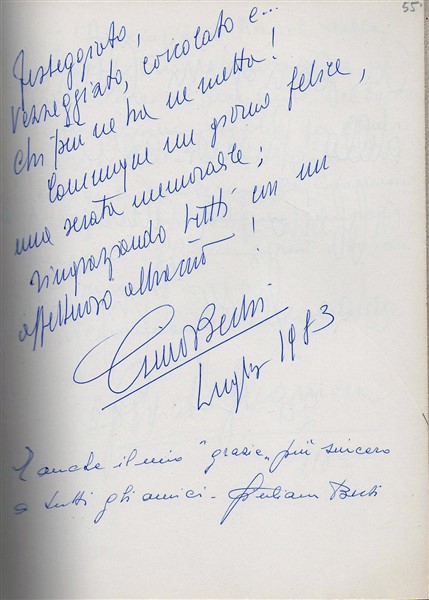 55
Festeggiato,
vezzeggiato, coccolato e...
chi più ne ha ne metta!
Comunque un giorno felice,
una serata memorabile;
ringraziando tutti con un
affettuoso abbraccio!
Gino Bechi
Luglio 1983
E anche il mio "grazie" più sincero
a tutti gli amici - Bechi